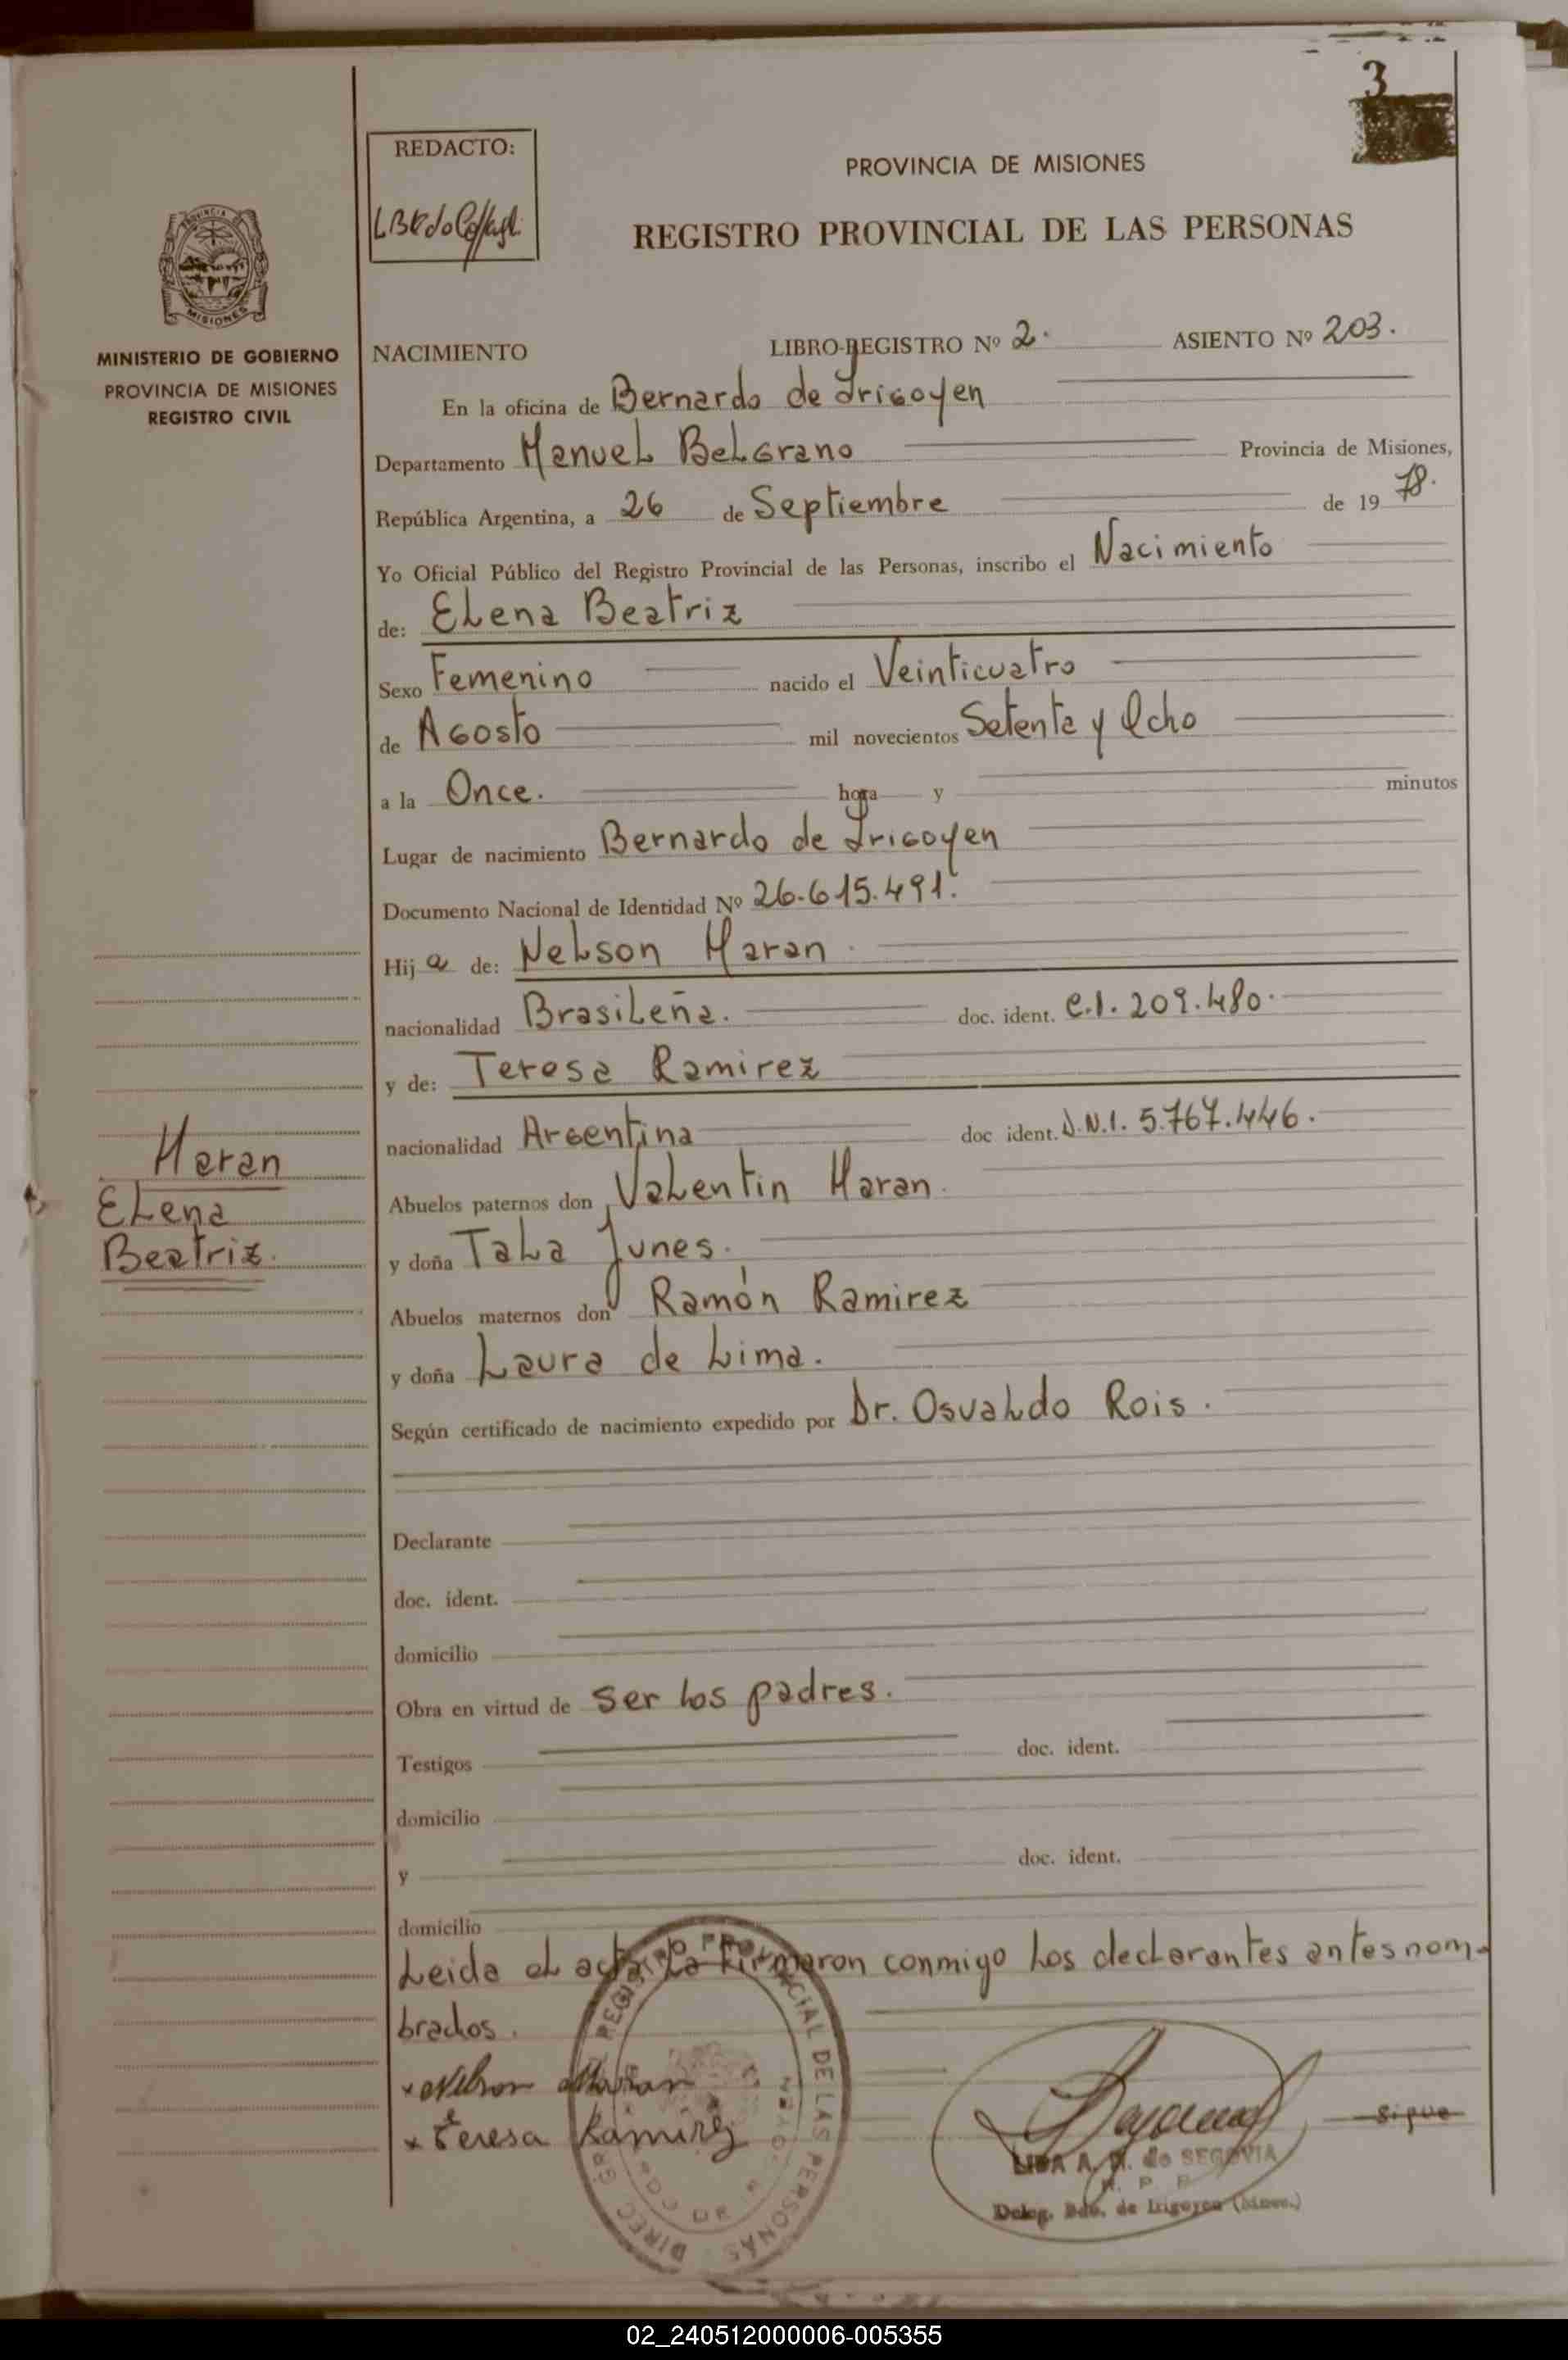 3
REDACTO:
PROVINCIA DE MISIONES
REGISTRO PROVINCIAL DE LAS PERSONAS
MISIONES
MINISTERIO DE GOBIERNO
PROVINCIA DE MISIONES
REGISTRO CIVIL
NACIMIENTO LIBRO-REGISTRO Nº 2. ASIENTO Nº 203.
En la oficina de Bernardo de Irigoyen
Departamento Manuel Belgrano Provincia de Misiones,
República Argentina, a 26 de Septiembre de 19 78.
Yo Oficial Público del Registro Provincial de las Personas, inscribo el Nacimiento
de: Elena Beatriz
Sexo Femenino nacido el Veinticuatro
de Agosto mil novecientos Setenta y Ocho
a la Once. hora y minutos
Lugar de nacimiento Bernardo de Irigoyen
Documento Nacional de Identidad Nº 26.615.491.
Hij a de: Nelson Maran.
nacionalidad Brasileña. doc. ident. C.I. 209.480.
y de: Teresa Ramirez
nacionalidad Argentina doc ident. D.N.I. 5.767.446.
Maran
Elena
Beatriz.
Abuelos paternos don Valentin Maran.
y doña Tala Junes.
Abuelos maternos don Ramón Ramirez
y doña Laura de Lima.
Según certificado de nacimiento expedido por Dr. Osvaldo Rois.
Declarante
doc. ident.
domicilio
Obra en virtud de ser los padres.
Testigos doc. ident.
domicilio
y doc. ident.
domicilio
Leida el acta la firmaron conmigo los declarantes antes nom-
brados.
x Nelson Maran
x Teresa Ramirez
REGISTRO PROVINCIAL DE LAS PERSONAS
sigue
LIDA A. M. de SEGOVIA
Deleg. Bdo. de Irigoyen (Mnes.)
02_240512000006-005355